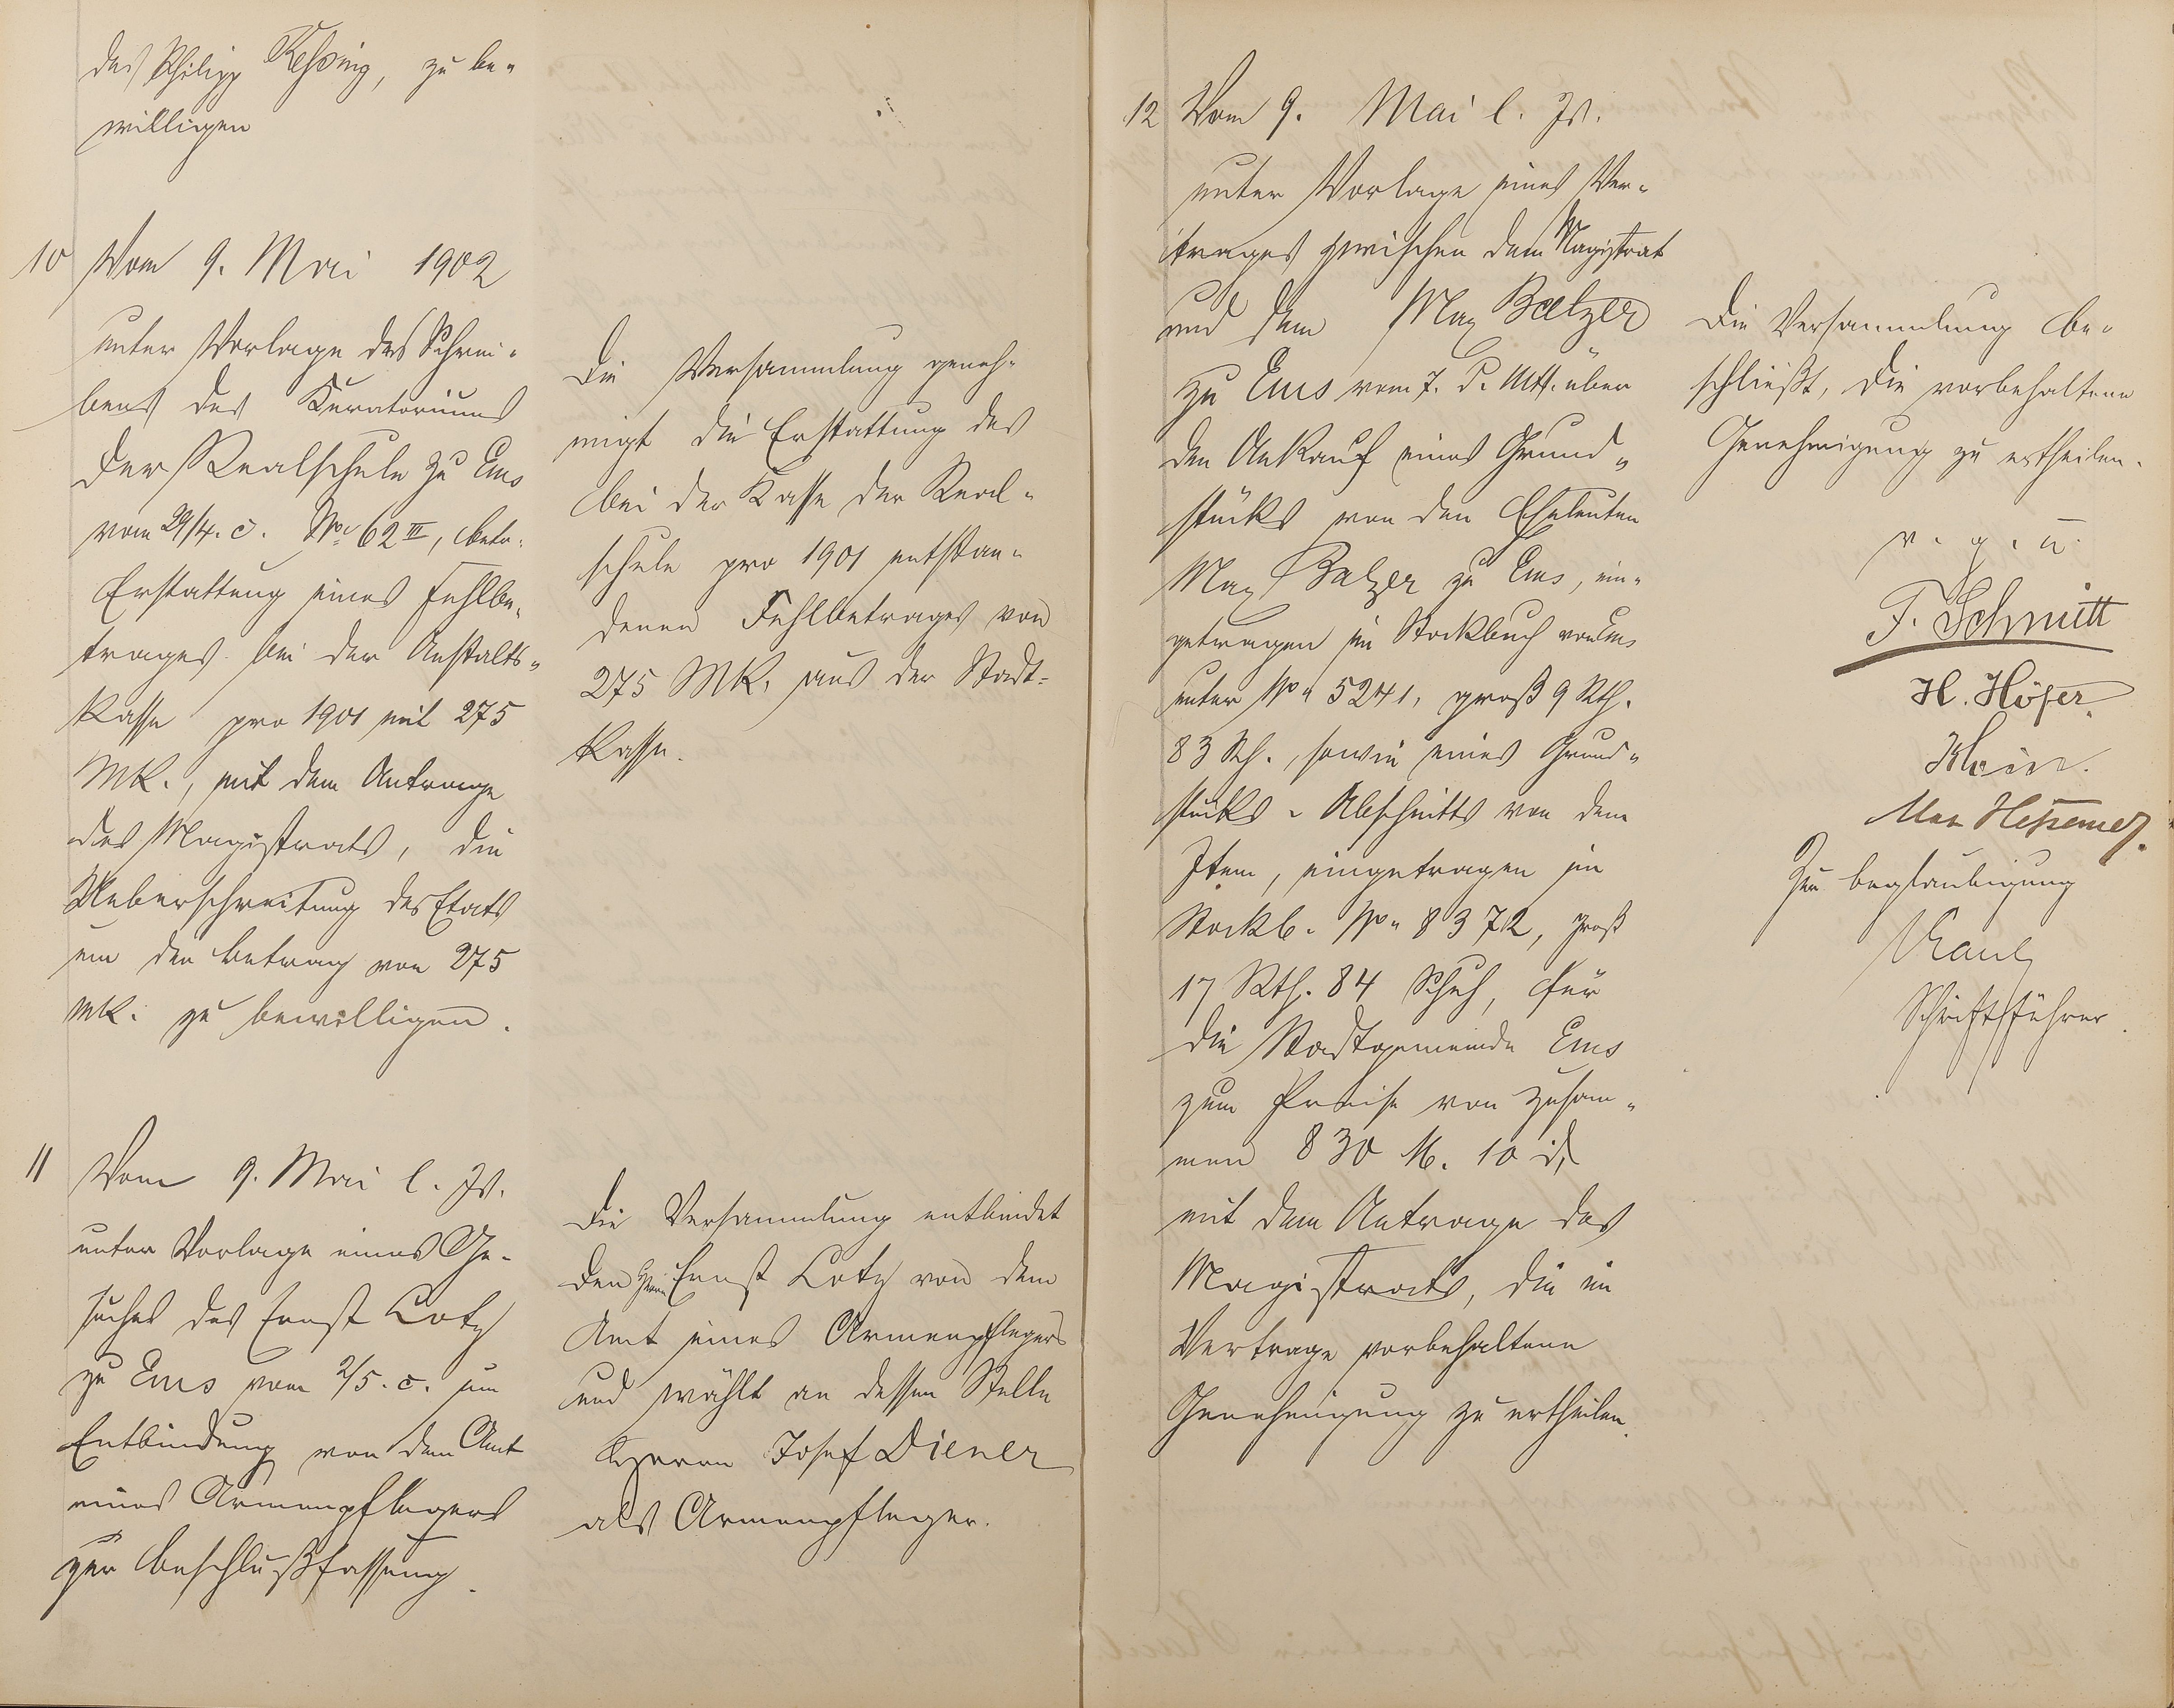 des Philipp Kessing, zu be-
willigen
10 Vom 9. Mai 1902
unter Vorlage des Schrei-
bens des Kuratoriums
der Realschule zu Ems
vom 29/4. c. No 62 III, betr.
Erstattung eines Fehlbe-
trages bei der Anstalts-
kasse pro 1901 mit 275
Mk., mit dem Antrage
des Magistrats, die
Ueberschreitung des Etats
um den Betrag von 275
Mk. zu bewilligen.
Die Versammlung geneh-
migt die Erstattung des
bei der Kasse der Real-
schule pro 1901 entstan-
denen Fehlbetrages von
275 Mk. aus der Stadt-
kasse.
11 Vom 9. Mai l. Js.
unter Vorlage eines Ge-
suches des Ernst Lotz
zu Ems vom 2/5. c. um
Entbindung von dem Amt
eines Armenpflegers
zur Beschlußfassung.
Die Versammlung entbindet
den Herrn Ernst Lotz von dem
Amt eines Armenpflegers
und wählt an dessen Stelle
Herrn Josef Diener
als Armenpfleger.
12 Vom 9. Mai l. Js.
unter Vorlage eines Ver-
trages zwischen dem Magistrat
und dem Max Balzer
zu Ems vom 7. d. Mts. über
den Ankauf eines Grund-
stücks von den Eheleuten
Max Balzer zu Ems, ein-
getragen im Stockbuch von Ems
unter No 5241, groß 9 Rth.
83 Sch., sowie eines Grund-
stücks-Abschnitts von dem
Item, eingetragen im
Stockb. No 8372, groß
17 Rth. 84 Schuh, für
die Stadtgemeinde Ems
zum Preise von zusam-
men 830 M. 10 d,
mit dem Antrage des
Magistrats, die im
Vertrage vorbehaltene
Genehmigung zu ertheilen.
Die Versammlung be-
schließt, die vorbehaltene
Genehmigung zu ertheilen.
v. g. u.
F. Schmitt
H. Höfer.
Max Hessemer.
Zur Beglaubigung
Kaul
Schriftführer.